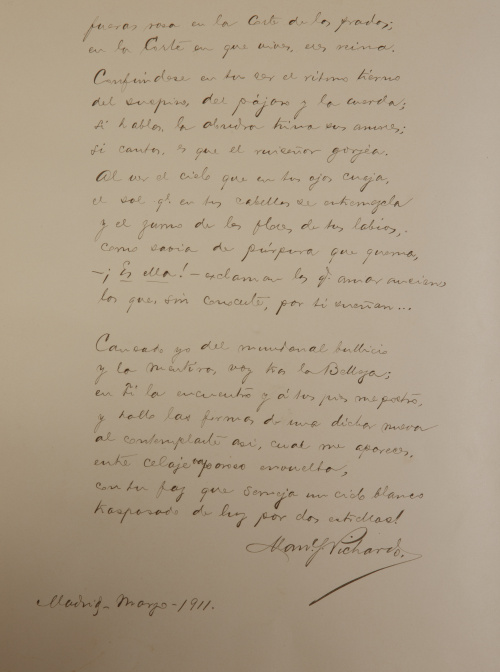 fueras rosa en la Corte de los prados;
en la Corte en que vives, eres reina.
Confúndese en tu ser el ritmo tierno
del suspiro del pájaro y la cuerda;
si hablas, la alondra trina sus amores;
si cantas, es que el ruiseñor gorjea.
Al ver el cielo que en tus ojos cuaja,
el sol q. en tus cabellos se
y el jumo de las flores de tus labios,
como savia de púrpura que quema,
—¡Es ella!—exclaman los q. amar ansiaron
los que, sin conocerte, por ti sueñan...
Cansado yo del mundanal bullicio
y la mentira voy tras la Belleza;
en Ti la encuentro y á tus pies me postro,
y hallo las formas de una dicha nueva
al contemplarte así, cual me apareces,
entre celaje vaporoso envuelta,
con tu faz que semeja un cielo blanco
traspasado de luz por dos estrellas!
Man. S. Pichardo.
Madrid—Marzo—1911.